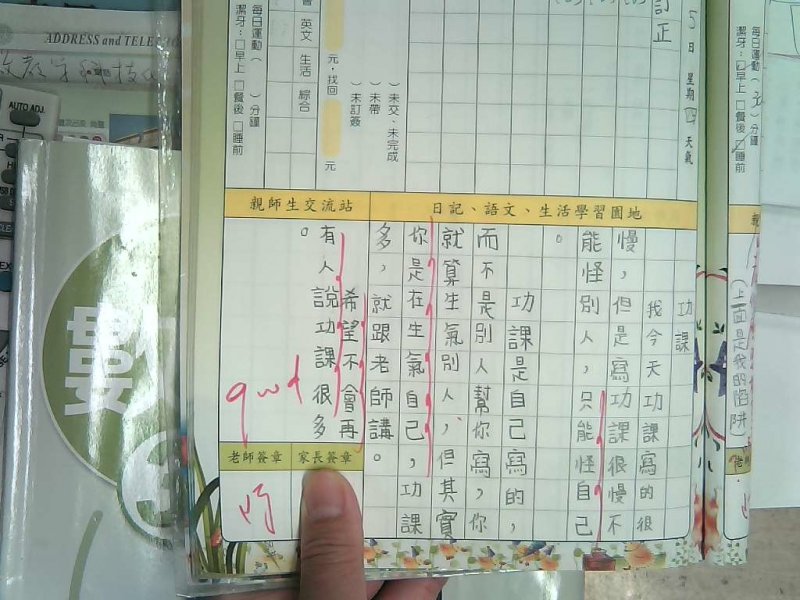 每日運動（ ）分鐘
潔牙：□早上 □餐後 □睡前
（上面是我的陷阱）
5日 星期四 天氣
訂正
）未交、未完成
）未帶
）未訂簽
元，找回 元
英文 生活 綜合
每日運動（ ）分鐘
潔牙：□早上 □餐後 □睡前
日記、語文、生活學習園地
功課
我今天功課寫的很
慢，但是寫功課很慢不
能怪別人，只能怪自己
。
功課是自己寫的，
而不是別人幫你寫，你
就算生氣別人，但其實
你是在生氣自己，功課
多，就跟老師講。
親師生交流站
希望不會再
有人說功課很多
。
家長簽章
老師簽章
ADDRESS and TELE
AUTO ADJ.
數